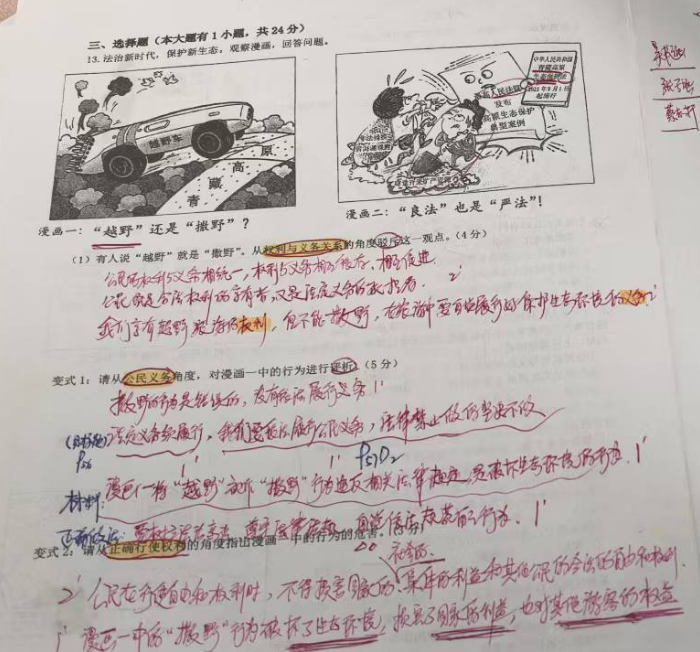 三、选择题（本大题有1小题，共24分）
13.法治新时代，保护新生态。观察漫画，回答问题。
越野车
青藏高原
中华人民共和国
青藏高原
生态保护法
2023年9月1日
起施行
最高人民法院
发布
高原生态保护
典型案例
漫画一：“越野”还是“撒野”？
漫画二：“良法”也是“严法”！
（1）有人说“越野”就是“撒野”。从权利与义务关系的角度驳斥这一观点。（4分）
公民的权利与义务相统一，权利与义务相互依存、相互促进
公民既是合法权利的享有者，又是法定义务的承担者。 2'
我们享有越野旅游的权利，但不能撒野，在旅游中要自觉履行好保护生态环境的义务 2'
变式1：请从公民义务角度，对漫画一中的行为进行评析。（5分）
撒野的行为是错误的，没有依法履行义务 1'
法定义务须履行，我们要依法履行公民义务，法律禁止做的坚决不做
P56
1' 1' P57P2
材料：漫画一将“越野”变作“撒野”行为违反相关法律规定，是破坏生态环境的行为。1'
正确做法：
行为。1'
变式2：请从正确行使权利的角度指出漫画一中的行为的危害。（3分）
社会的、
2' 公民在行使自由和权利时，不得损害国家的、集体的利益和其他公民的合法的自由和权利
1' 漫画一中的“撒野”行为破坏了生态环境，损害了国家的利益，也对其他游客的权益